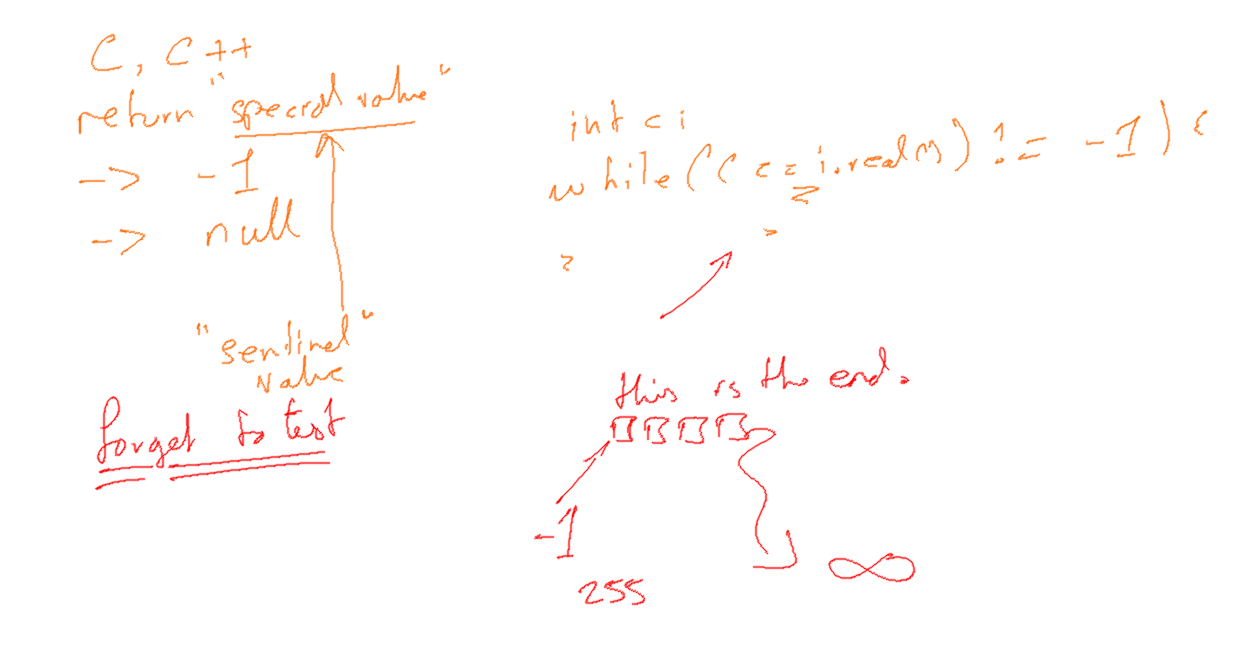 C, C++
return "special value"
-> -1
-> null
"sentinel"
value
forget to test
int c;
while ((c = i.read()) != -1) {
}
}
this is the end.
-1
255
∞